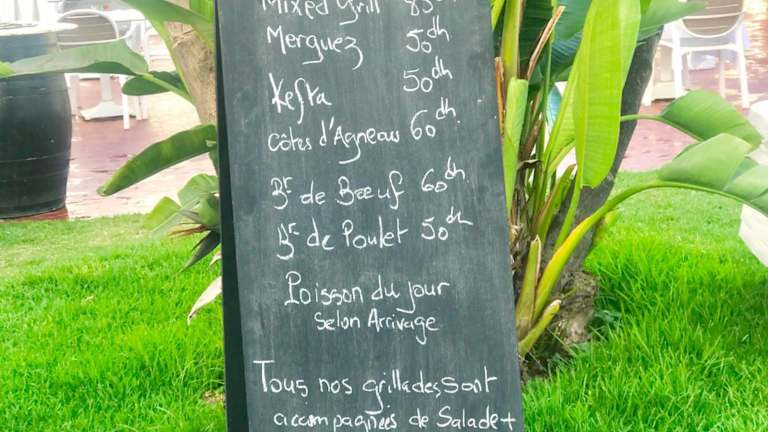 Mixed Grill 85dh
Merguez 50dh
Kefta 50dh
Côtes d'Agneaus 60dh
Br de Bœuf 60dh
Br de Poulet 50dh
Poisson du jour
Selon Arrivage
Tous nos grillades sont
accompagnées de Salade +